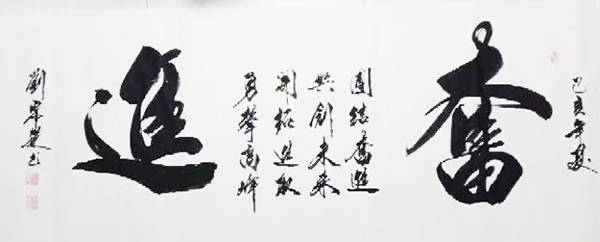 己亥年夏
奮
團結奮進
共創未來
開拓進取
勇攀高峰
進
劉